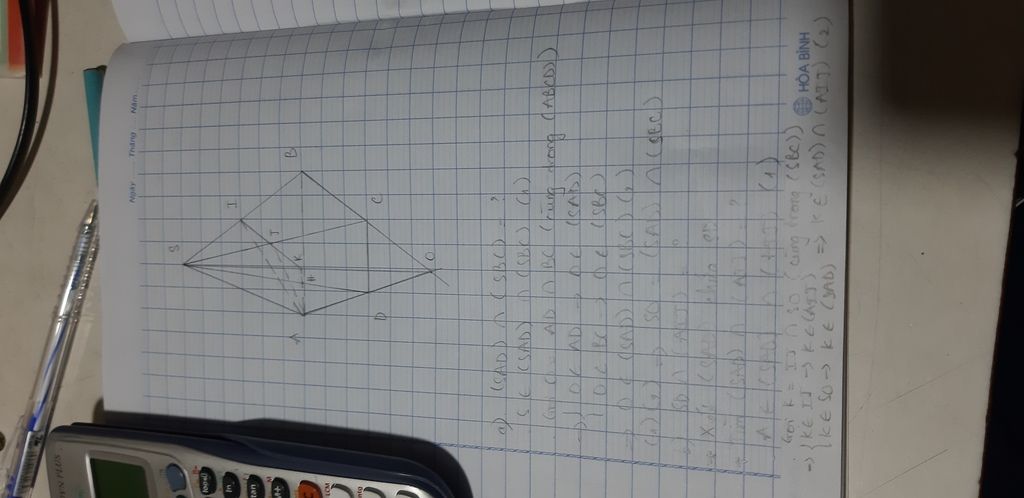 Ngày Tháng Năm
S
I
A
B
J
K
H
D
C
O
a) (SAD) ∩ (SBC) = ?
S ∈ (SAD) ∩ (SBC) (1)
Gọi O = AD ∩ BC (cùng trong (ABCD))
=> { O ∈ AD → O ∈ (SAD)
O ∈ BC → O ∈ (SBC)
=> O ∈ (SAD) ∩ (SBC) (2)
(1) (2) => SO = (SAD) ∩ (SBC)
b) SD ∩ (AIJ)
* Xét (SAD) chứa SD
* Tìm (SAD) ∩ (AIJ) = ?
A ∈ (SAD) ∩ (AIJ) (1)
Gọi K = IJ ∩ SO (cùng trong (SBC))
=> { K ∈ IJ → K ∈ (AIJ)
K ∈ SO → K ∈ (SAD) => K ∈ (SAD) ∩ (AIJ) (2)
HÒA BÌNH
PLUS